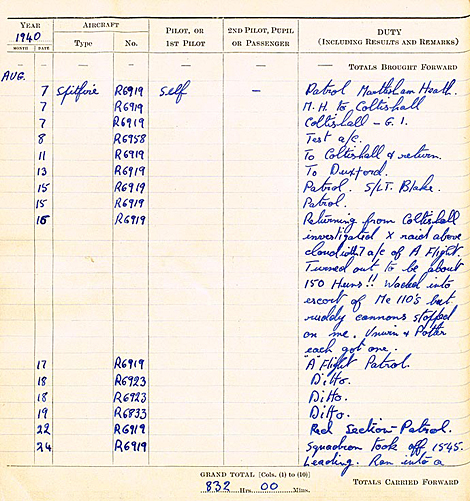 YEAR AIRCRAFT PILOT, OR 1ST PILOT 2ND PILOT, PUPIL OR PASSENGER DUTY (INCLUDING RESULTS AND REMARKS)
1940
MONTH DATE Type No.
— — — — — — TOTALS BROUGHT FORWARD
AUG.
7 Spitfire R6919 Self — Patrol Martlesham Heath.
7 R6919 M.H. to Coltishall
7 R6919 Coltishall – G.I.
8 R6958 Test a/c.
11 R6919 To Coltishall & return.
13 R6919 To Duxford.
15 R6919 Patrol. S/LT. Blake.
15 R6919 Patrol.
16 R6919 Returning from Coltishall
investigated X raid above
cloud with 7 a/c of A Flight.
Turned out to be about
150 Huns!! Waded into
escort of Me 110's but
ruddy cannons stopped
on me. Unwin & Potter
each got one.
17 R6919 'A' Flight Patrol.
18 R6923 Ditto.
18 R6923 Ditto.
19 R6833 Ditto.
22 R6919 Red Section Patrol.
24 R6919 Squadron took off 1545.
Leading. Ran into a
GRAND TOTAL [Cols. (1) to (10)]
832 Hrs. 00 Mins. TOTALS CARRIED FORWARD